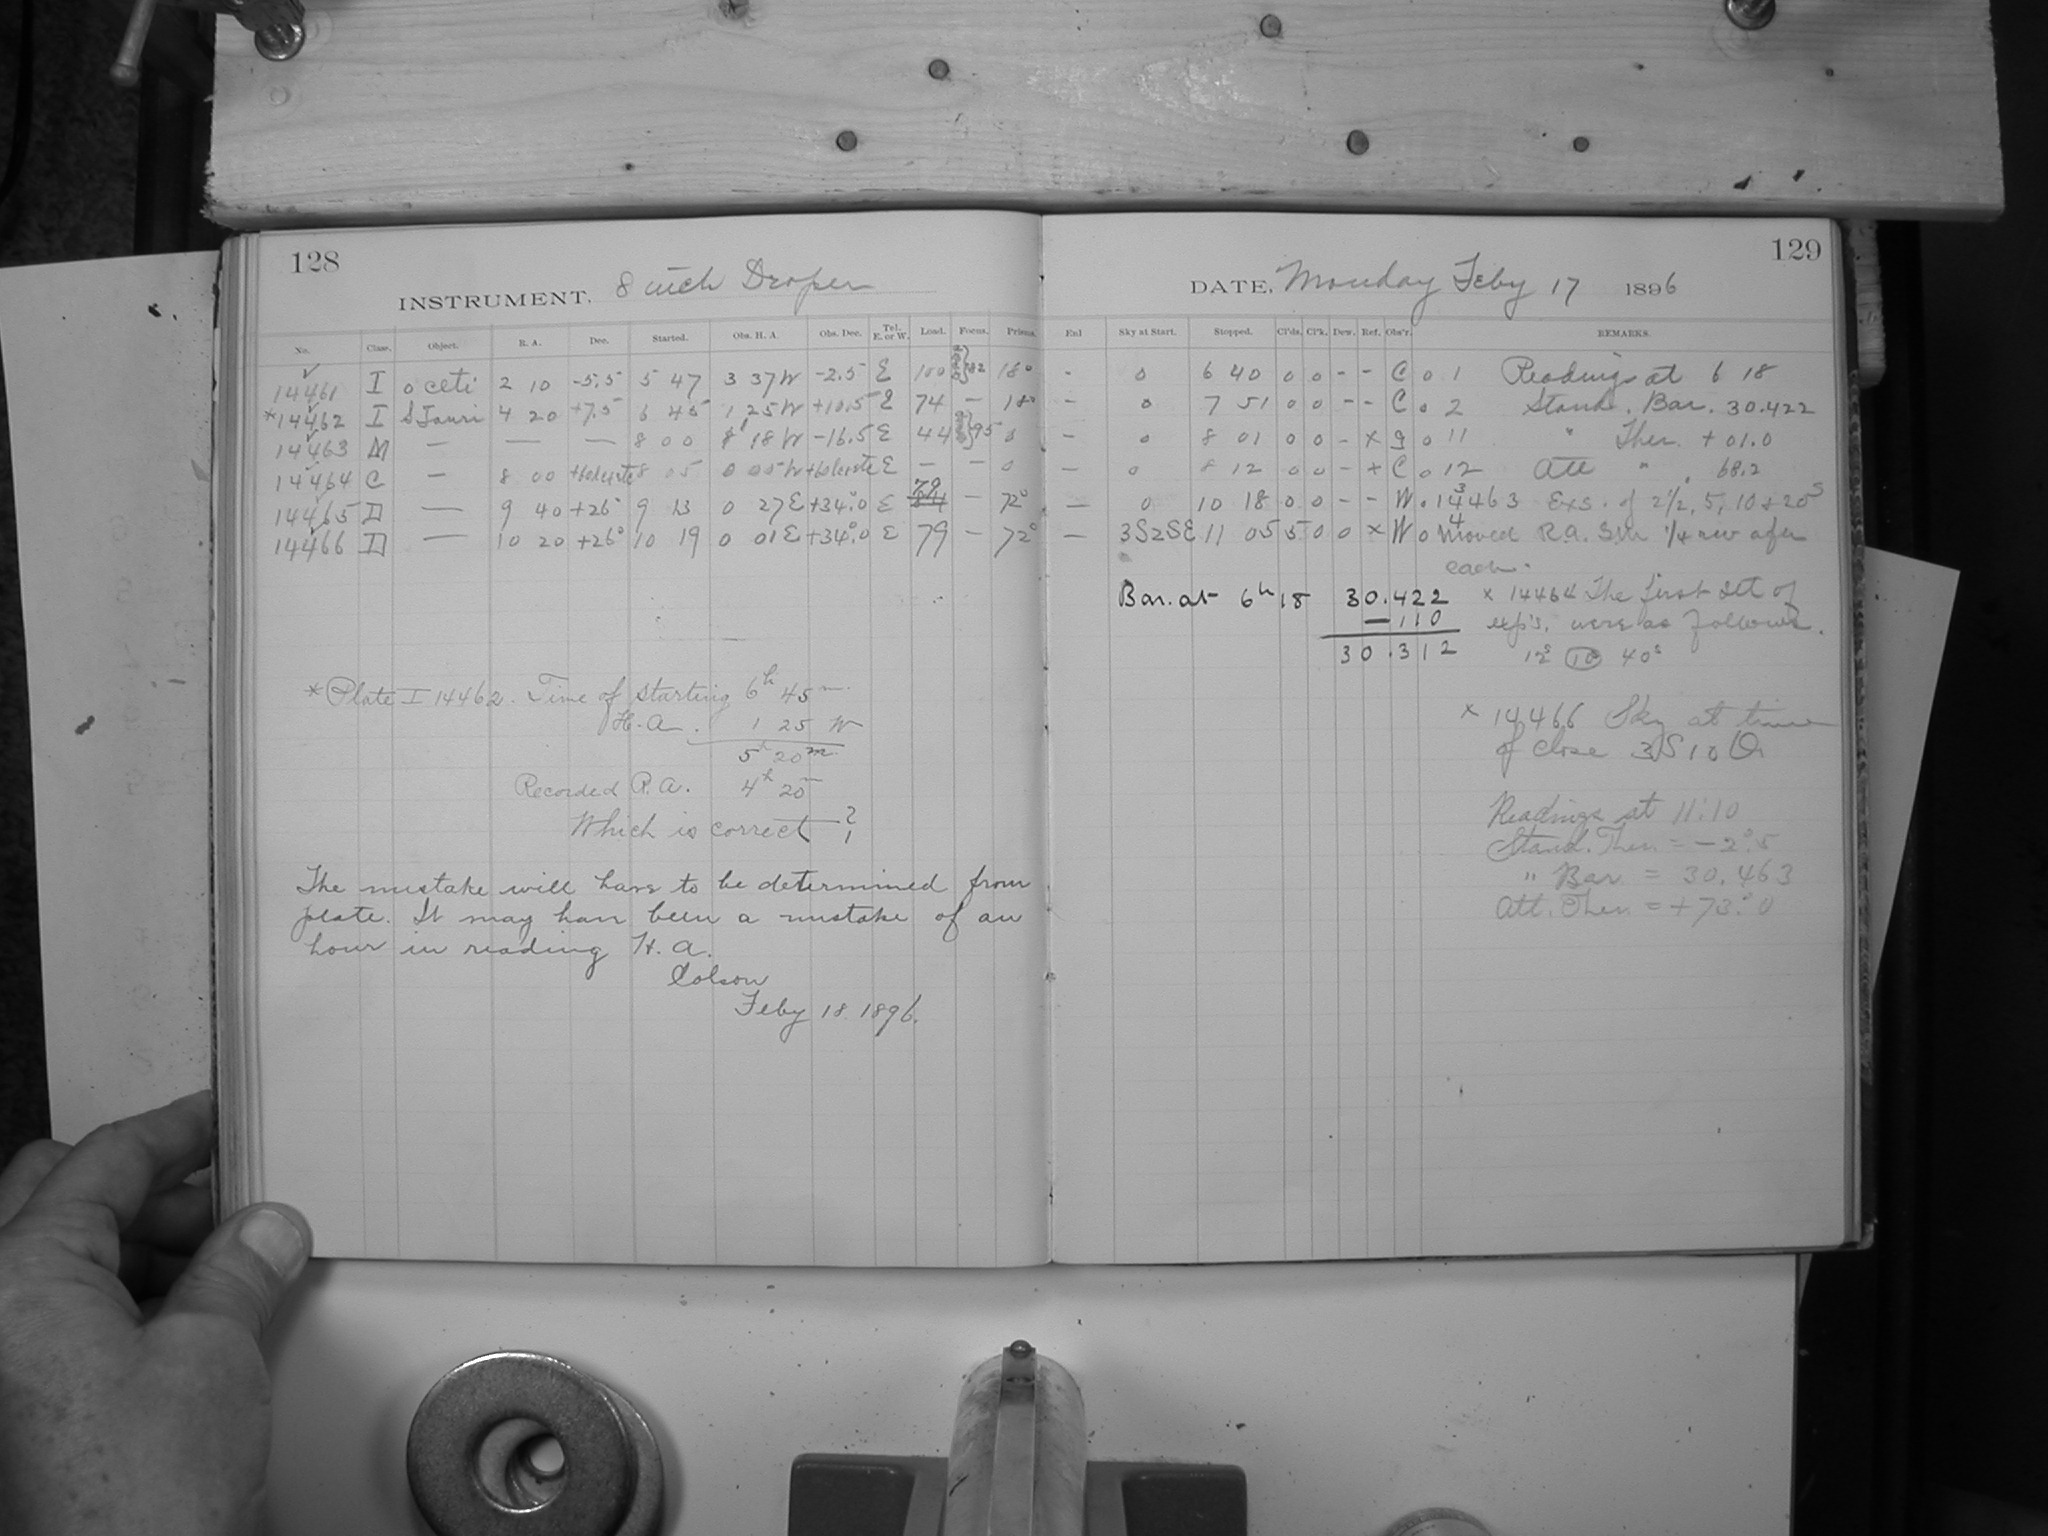 128
INSTRUMENT, 8 inch Draper
No. Class. Object. R. A. Dec. Started. Obs. H. A. Obs. Dec. Tel. E. or W. Load. Focus. Prisms.
14461 I o Ceti 2 10 -5.5 5 47 3 37 W -2.5 E 100 82 18°
*14462 I S Tauri 4 20 +7.5 6 45 1 25 W +10.5 E 74 - 18°
14463 M — — — 8 00 18 W -16.5 E 44 95 0
14464 C — 8 00 +tolerste 8 05 0 05 W E — - 0
14465 D — 9 40 +26° 9 13 0 27 E +34°.0 E 79 - 72°
14466 D — 10 20 +26° 10 19 0 01 E +34°.0 E 79 - 72°
*Plate I 14462. Time of starting 6h 45m
H.A. 1 25 W
5h 20m
Recorded R.A. 4h 20m
Which is correct?
The mistake will have to be determined from
plate. It may have been a mistake of an
hour in reading H. A.
Colson
Feby 18 1896.
129
DATE, Monday Feby 17 1896
Enl Sky at Start. Stopped. Cl'ds. Cl'k. Dew. Ref. Obs'r. REMARKS.
- 0 6 40 0 0 - - C 0 1 Readings at 6 18
- 0 7 51 0 0 - - C 0 2 Stand. Bar. 30.422
- 0 8 01 0 0 - x g 0 11 " Ther. +01.0
— 0 8 12 0 0 - + C 0 12 Att " 68.2
— 0 10 18 0 0 - - W 0 3 14463 Exs. of 2½, 5, 10 & 20s
— 3S2SE 11 05 5 0 0 x W 0 4 moved R.A. ¼ rev after
each.
Bar. at 6h 18 30.422
—.110
30.312
x 14464 The first set of
exp's. were as follows.
12s 10 40s
x 14466 Sky at time
of close 3S10
Readings at 11:10
Stand. Ther. = -2°.5
" Bar = 30.463
Att. Ther. = +73.°0